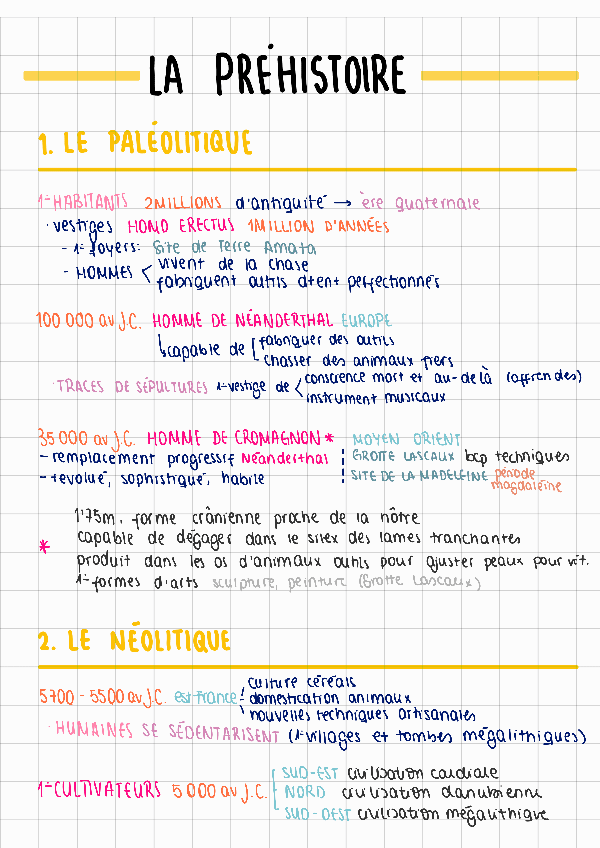 LA PRÉHISTOIRE
1. LE PALÉOLITIQUE
1= HABITANTS 2 MILLIONS d'antiguité → ère guaternaie
· vestiges HOMO ERECTUS 1 MILLION D'ANNÉES
- 1= foyers: Site de Terre Amata
- HOMMES < vivent de la chase
fabriquent outils dtent perfectionnés
100 000 av J.C. HOMME DE NÉANDERTHAL EUROPE
↳ capable de [ fabriguer des outils
chasser des animaux fiers
· TRACES DE SÉPULTURES 1= vestige de < conscience mort et au-delà (offrendes)
instrument musicaux
35 000 av J.C. HOMME DE CROMAGNON * MOYEN ORIENT
- remplacement progressif Néanderthal ¦ GROTTE LASCAUX bcp techniques
- +evolué, sophistigué, habile ¦ SITE DE LA MADELEINE période
magdaleine
1'75m. forme crânienne proche de la nôtre
* capable de dégager dans le silex des lames tranchantes
produit dans les os d'animaux outils pour ajuster peaux pour vêt.
1= formes d'arts sculpture, peinture (Grotte Lascaux)
2. LE NÉOLITIQUE
5700 - 5500 av J.C. est France ¦ culture céréals
domestication animaux
nouvelles techniques artisanales
· HUMAINES SE SÉDENTARISENT (1= villages et tombes mégalithiques)
1= CULTIVATEURS 5 000 av J.C. [ SUD-EST civilisation cardiale
NORD civilisation danubienne
SUD-OEST civilisation mégalithigue